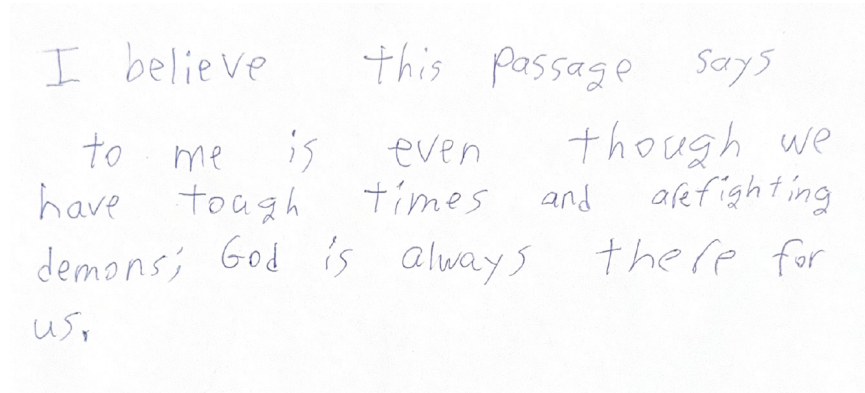 I believe this passage says
to me is even though we
have tough times and are fighting
demons; God is always there for
us.